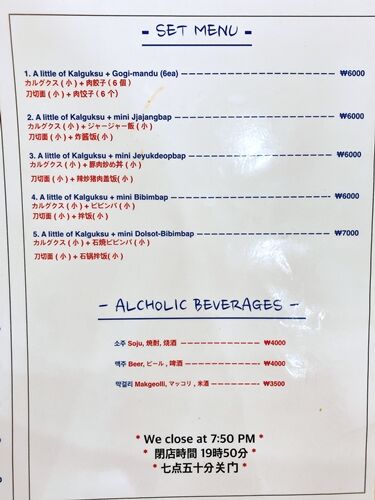 - SET MENU -
1. A little of Kalguksu + Gogi-mandu (6ea) ₩6000
カルグクス ( 小 ) + 肉餃子 ( 6 個 )
刀切面 ( 小 ) + 肉饺子 ( 6 个 )
2. A little of Kalguksu + mini Jjajangbap ₩6000
カルグクス ( 小 ) + ジャージャー飯 ( 小 )
刀切面 ( 小 ) + 炸酱饭( 小 )
3. A little of Kalguksu + mini Jeyukdeopbap ₩6000
カルグクス ( 小 ) + 豚肉炒め丼 ( 小 )
刀切面 ( 小 ) + 辣炒猪肉盖饭( 小 )
4. A little of Kalguksu + mini Bibimbap ₩6000
カルグクス ( 小 ) + ビビンバ ( 小 )
刀切面 ( 小 ) + 拌饭( 小 )
5. A little of Kalguksu + mini Dolsot-Bibimbap ₩7000
カルグクス ( 小 ) + 石焼ビビンバ ( 小 )
刀切面 ( 小 ) + 石锅拌饭( 小 )
- ALCHOLIC BEVERAGES -
소주 Soju, 焼酎, 烧酒 ₩4000
맥주 Beer, ビール , 啤酒 ₩4000
막걸리 Makgeolli, マッコリ , 米酒 ₩3500
* We close at 7:50 PM *
* 閉店時間 19時50分 *
* 七点五十分关门 *